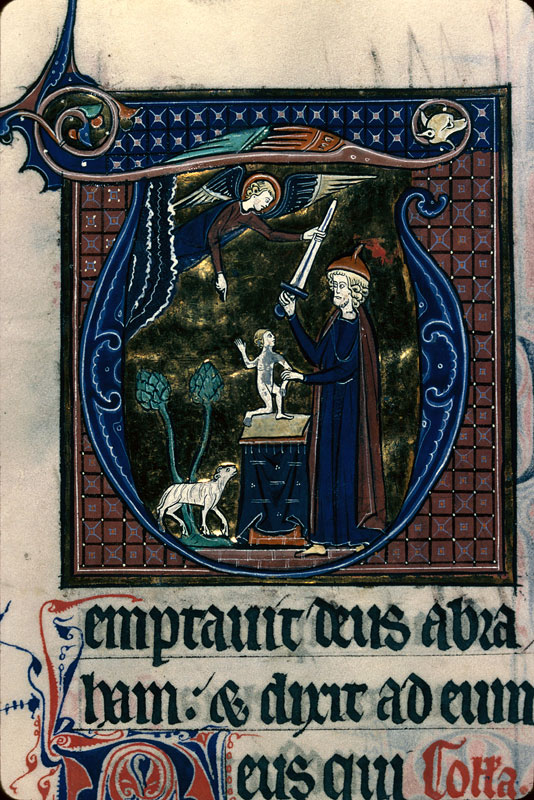 Temptauit deus abra
ham. & dixit ad eum
Deus qui Coll'a.